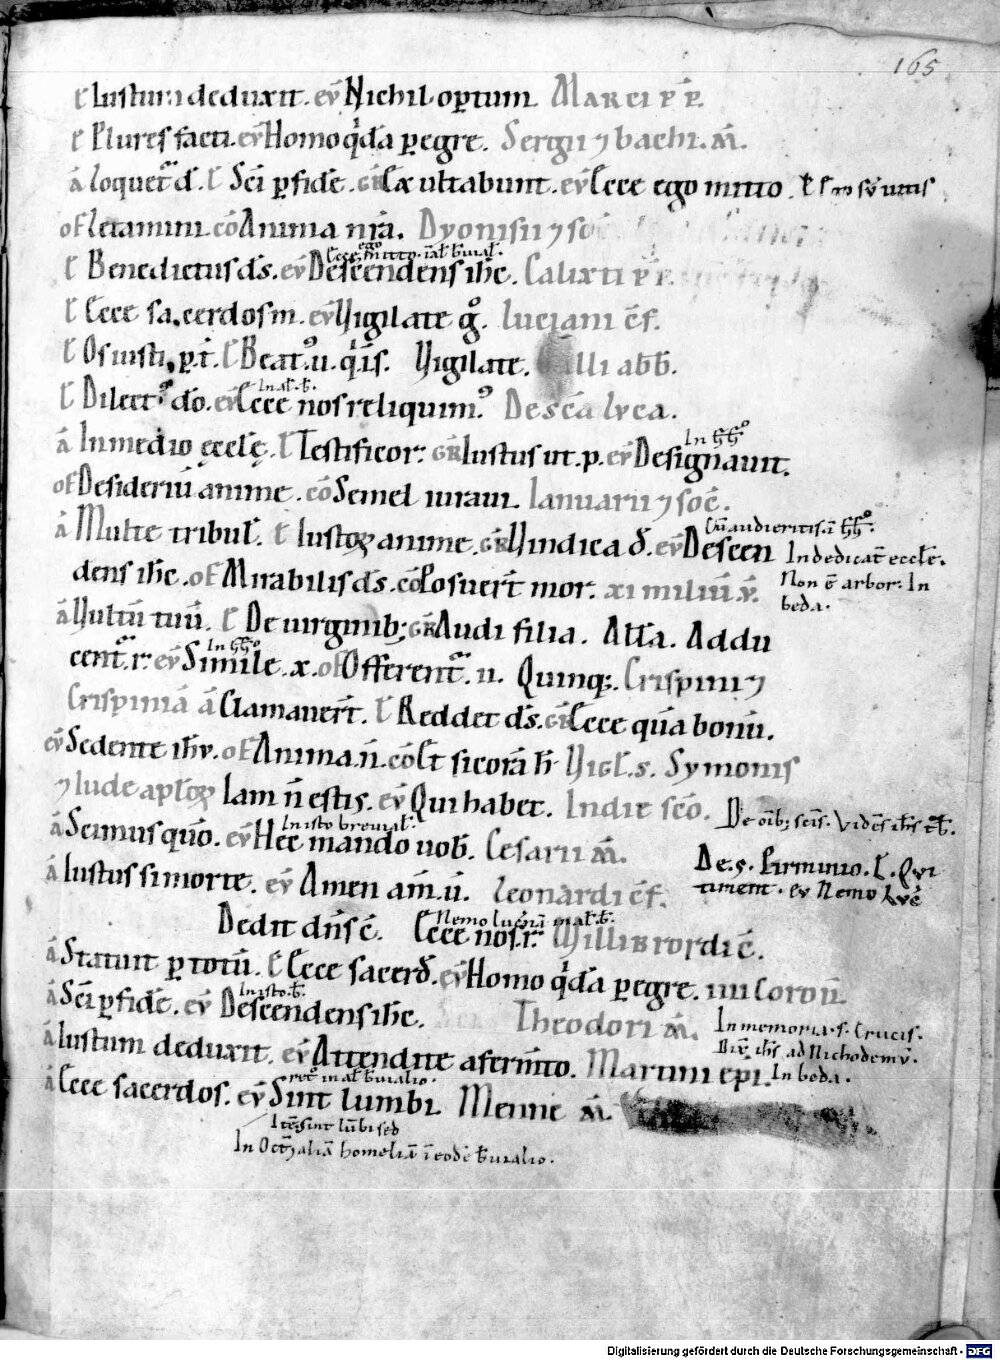 165
ł Iustum deduxit. eṽ Nichil opertum Marci p̄ p̄.
ł Plures facti. eṽ Homo qͥdā p̱egre. Sergii ⁊ bachi. m̄.
ā Loquet᷑ d̄. ł Sc̄i p̱ fidē. GR̄ Exultabunt. eṽ Ecce ego mitto.
oF Letamini. cō Anima nr̄a. Dyonisii ⁊ soc̄
Ecce ego mitto. īal̄. b̄uial̄.
ł Benedictus ds̄. eṽ Descendens ih̄c. Calixti p̄ p̄.
ł Ecce sacerdos m. eṽ Vigilate q̊. Luciani c̄f.
ł Os iusti. p. ī. ł Beat᷒. u. qͥ. ī. s̄. Vigilate. Galli abb̄.
In al̄. b̄.
ł Dilect᷒ dō. eṽ Ecce nos reliquim᷒. Desc̄a luca.
In
ā In medio ęcclę. ł Testificor. GR̄ Iustus ut. p. eṽ Designauit.
oF Desideriū anime. cō Semel iuraui. Ianuarii ⁊ soc̄.
Cū audieritis. ī
ā Multe tribul̄. ł Iustoꝝ anime. GR̄ Vindica d̄. eṽ Descen
In dedicat̄ eccl̄e.
dens ih̄c. oF Mirabilis ds̄. cō Posuer̄t mor. xi miliū. v̄.
Non ē arbor. In
beda.
ā Vultū tuū. ł De uirginib;. GR̄ Audi filia. Alla. Addu
In
cent᷑. r. eṽ Simile. x. oF Offerent᷑. u. Quinq;. Crispini ⁊
Crispiniā ā Clamauer̄t. ł Reddet ds̄. GR̄ Ecce quā bonū.
eṽ Sedente ih̄u. oF Anima. n̄. cō Et si corā h̄. Vigl̄. s. Symonis
⁊ Iude apl̄oꝝ Iam n̄ estis. eṽ Qui habet. In die sc̄o.
De oīb; sc̄is. Vidēs ih̄s t̄b̄.
In isto breuial̄.
ā Scimus quō. eṽ Hec mando uob̄. Cesarii m̄.
De. s. Pirminio. ł. Qui
ā Iustus si morte. eṽ Amen am̄. ū. Leonardi c̄f.
timent. ev Nemo luc̄
Nemo lucr̄nā in al̄. b̄.
Dedit dn̄s c̄. Ecce nos. r. Willibrordi c̄.
ā Statuit p̱ totū. ł Ecce sacerd̄. eṽ Homo qͥdā p̱egre. iiii Coron̄.
In isto. b̄.
ā Sc̄i p̱ fidē. eṽ Descendens ih̄c. Theodori m̄.
In memoria. s. Crucis.
Dix̄ ih̄s ad Nichodemū.
ā Iustum deduxit. eṽ Attendite a ferm̄to. Martini epi.
In beda.
in al̄. b̄uialio.
ā Ecce sacerdos. eṽ Sint lumbi. Menne m̄.
Itē sint lūbi sed
In Oct̄ ⁊ aliā homeliā ī eodē b̄uialio.
Digitalisierung gefördert durch die Deutsche Forschungsgemeinschaft - DFG